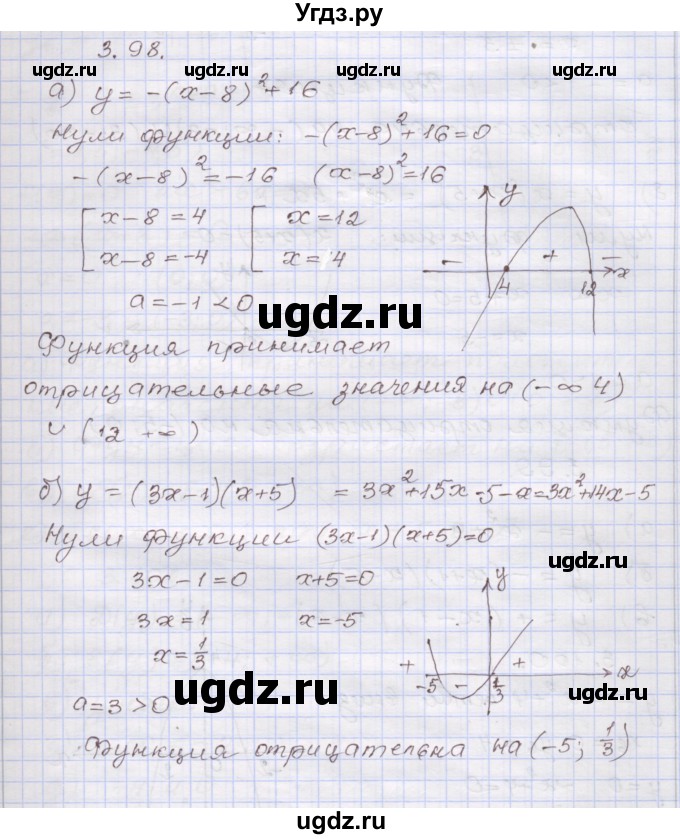 Угдз.ру
3.98.
ugdz.ru ugdz.ru ugdz.ru
а) y = -(x-8)²+16
Нули функции: -(x-8)²+16=0
-(x-8)²=-16 (x-8)²=16
x-8=4 x=12
x-8=-4 x=4
y
- + -
4 12 x
a=-1<0
ugdz.ru
ugdz.ru
ugdz.ru
Функция принимает
отрицательные значения на (-∞ 4)
∪ (12 +∞)
б) y = (3x-1)(x+5) = 3x²+15x-5-x=3x²+14x-5
Нули функции (3x-1)(x+5)=0
3x-1=0 x+5=0
3x=1 x=-5
x=1/3
y
+ - +
-5 1/3 x
ugdz.ru
ugdz.ru
ugdz.ru
a=3>0
Функция отрицательна на (-5; 1/3)
ugdz.ru
ugdz.ru
ugdz.ru